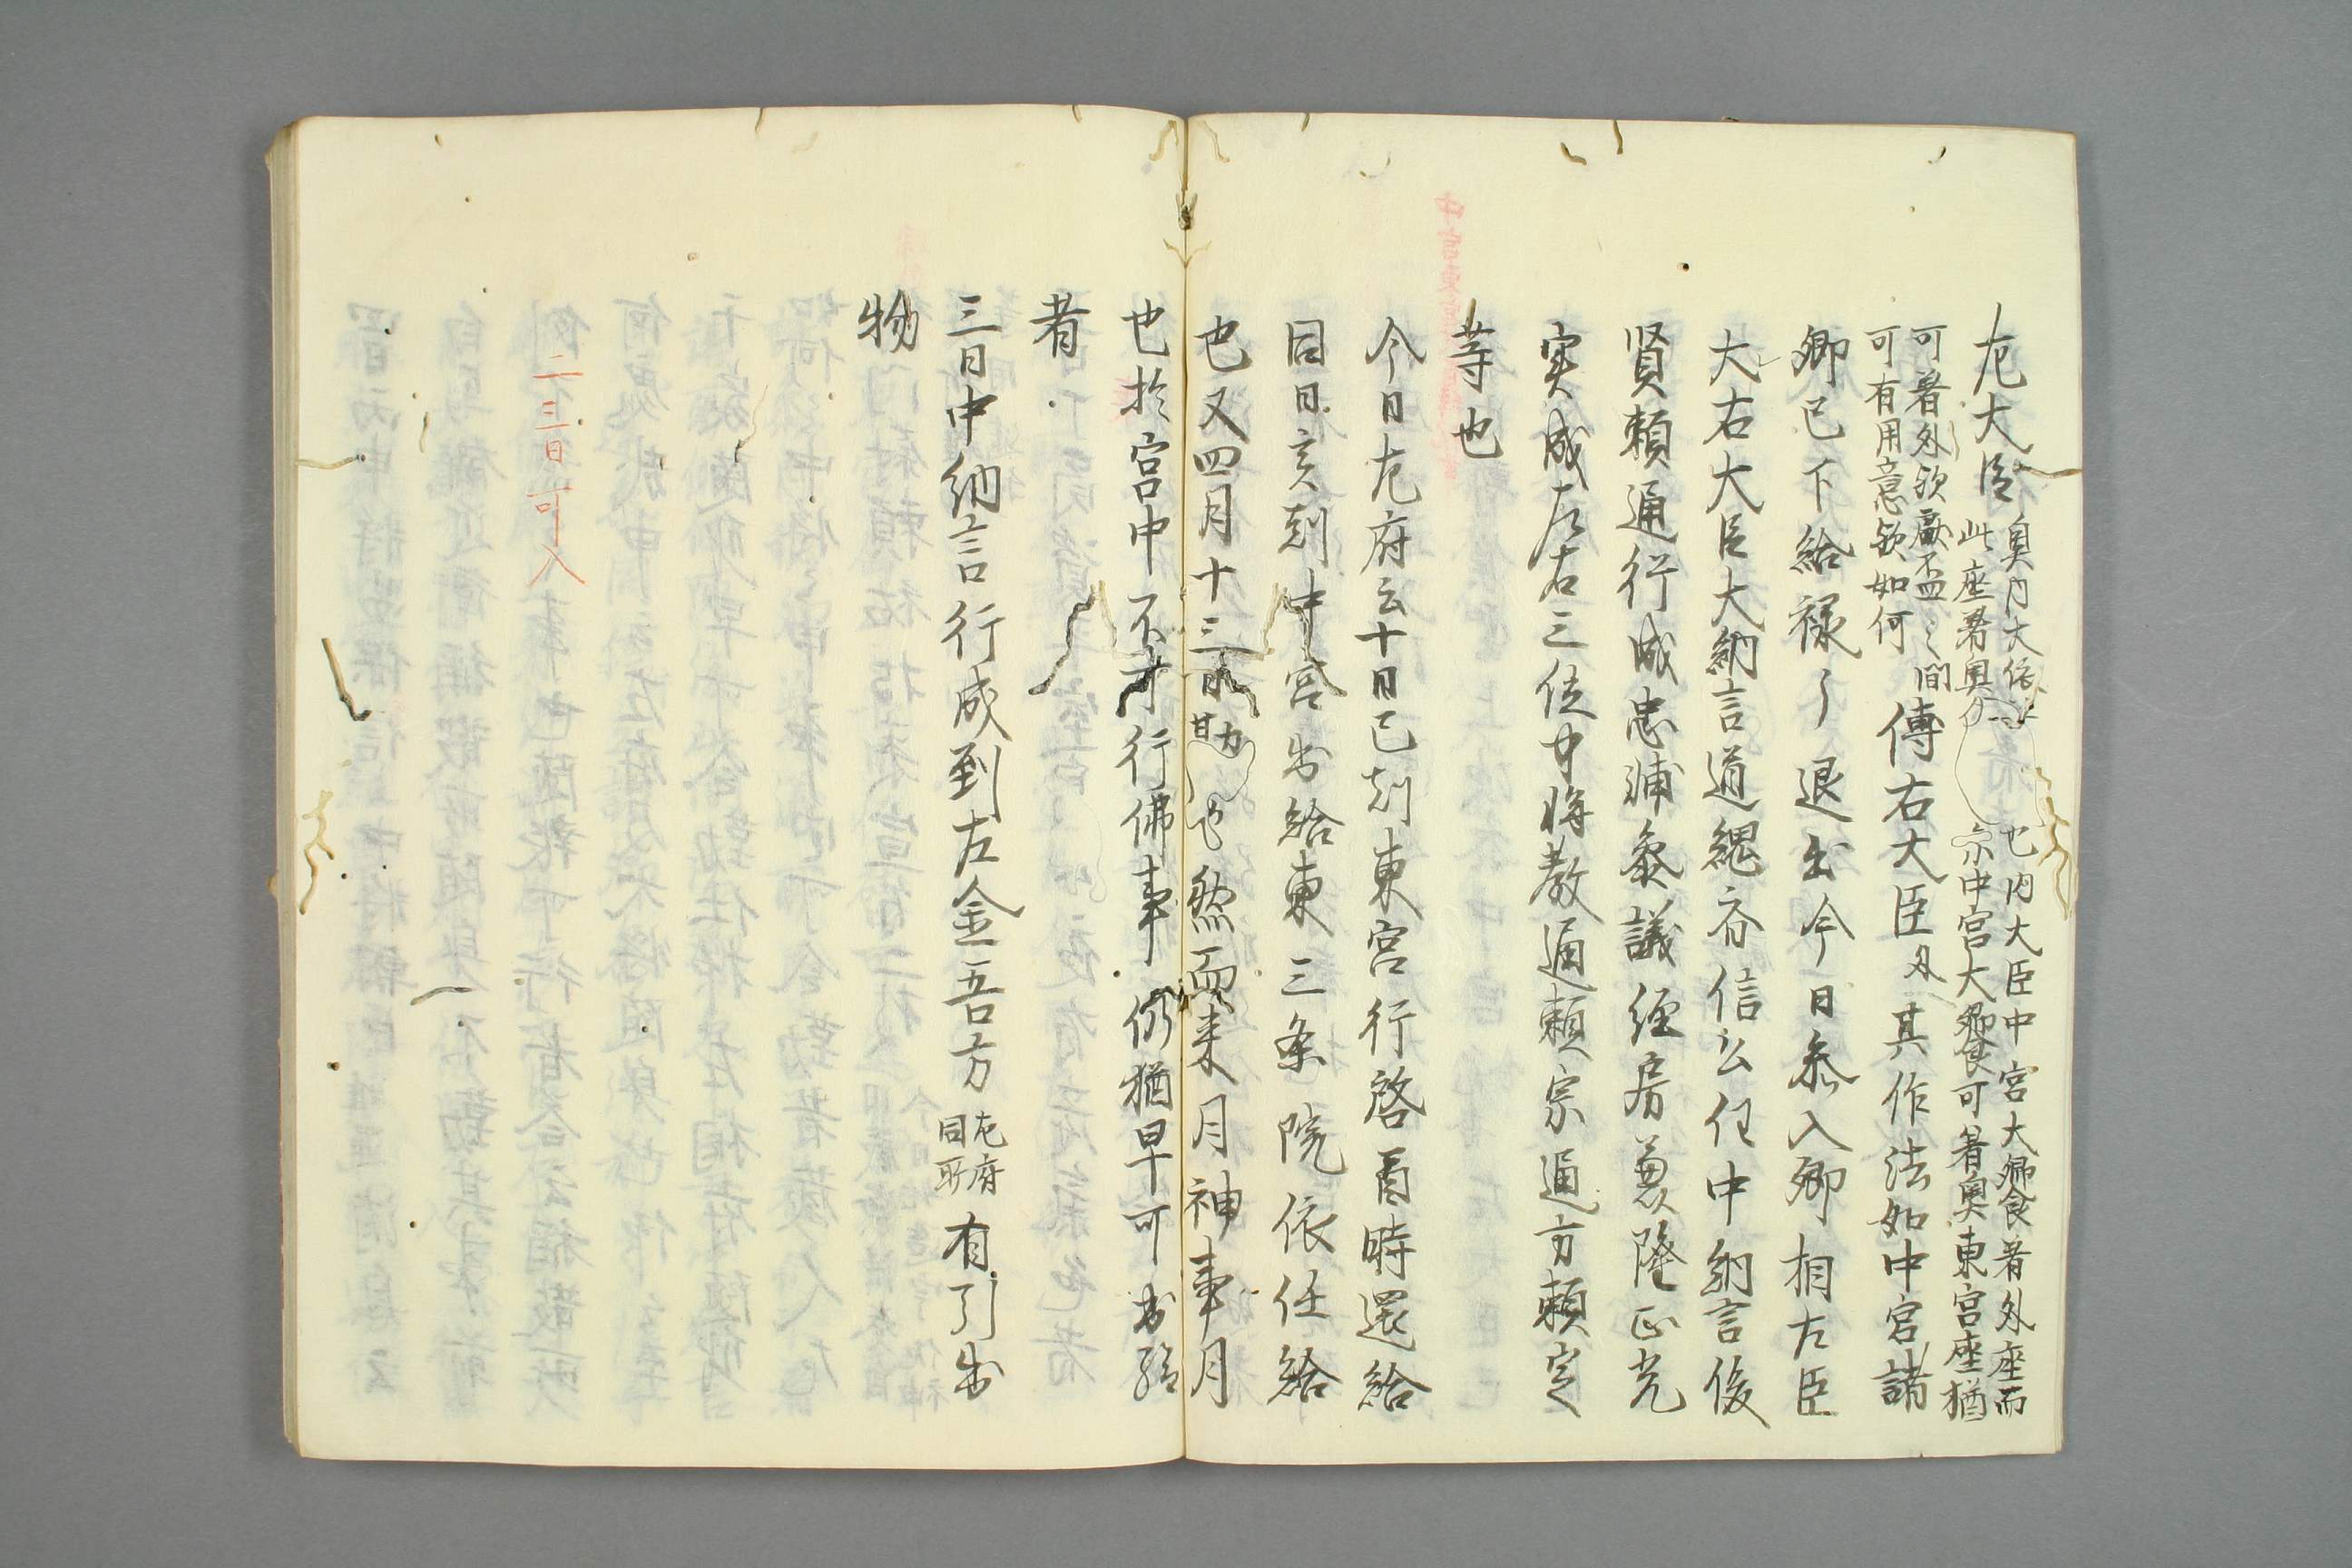 左大臣
奥内大臣
此座着奥
也内大臣中宮大饗着外座而
示中宮大饗可着奥東宮座猶
可着外欤勸盃之間
可有用意欤如何
傳右大臣外其作法如中宮諸
卿已下給禄了退出今日参入卿相左臣
大右大臣大納言道綱齊信公任中納言俊
賢頼通行成忠輔参議經房兼隆正光
実成左右三位中将教通頼宗通方頼定
等也
今日左府云十日巳刻東宮行啓酉時還給
同日亥刻中宮出給東三条院依任給
也又四月十三日
也然而来月神事月
也於宮中不可行佛事仍猶早可出給
者
三日中納言行成到左金吾方
左府
同所
有引出
物
二三日可入